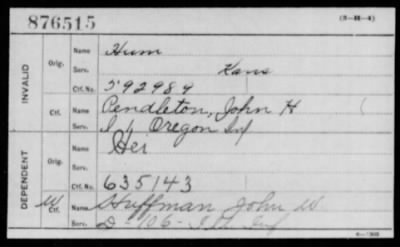 876515
(3-M-4)
INVALID
Orig.
Name Hum
Serv. Kans
Ctf. No. 592989
Ctf.
Name Pendleton, John H
Serv. Oregon Inf
DEPENDENT
Orig.
Name Hei
Serv.
Ctf. No. 635143
W Ctf.
Name Huffman, John W
Serv. D-106- Ill Inf